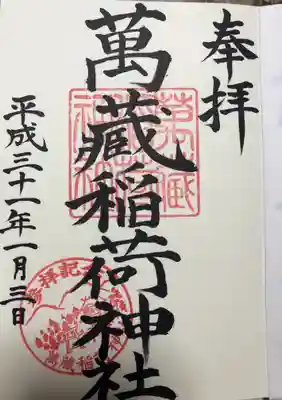 奉拝
萬蔵稲荷神社
平成三十一年一月三日